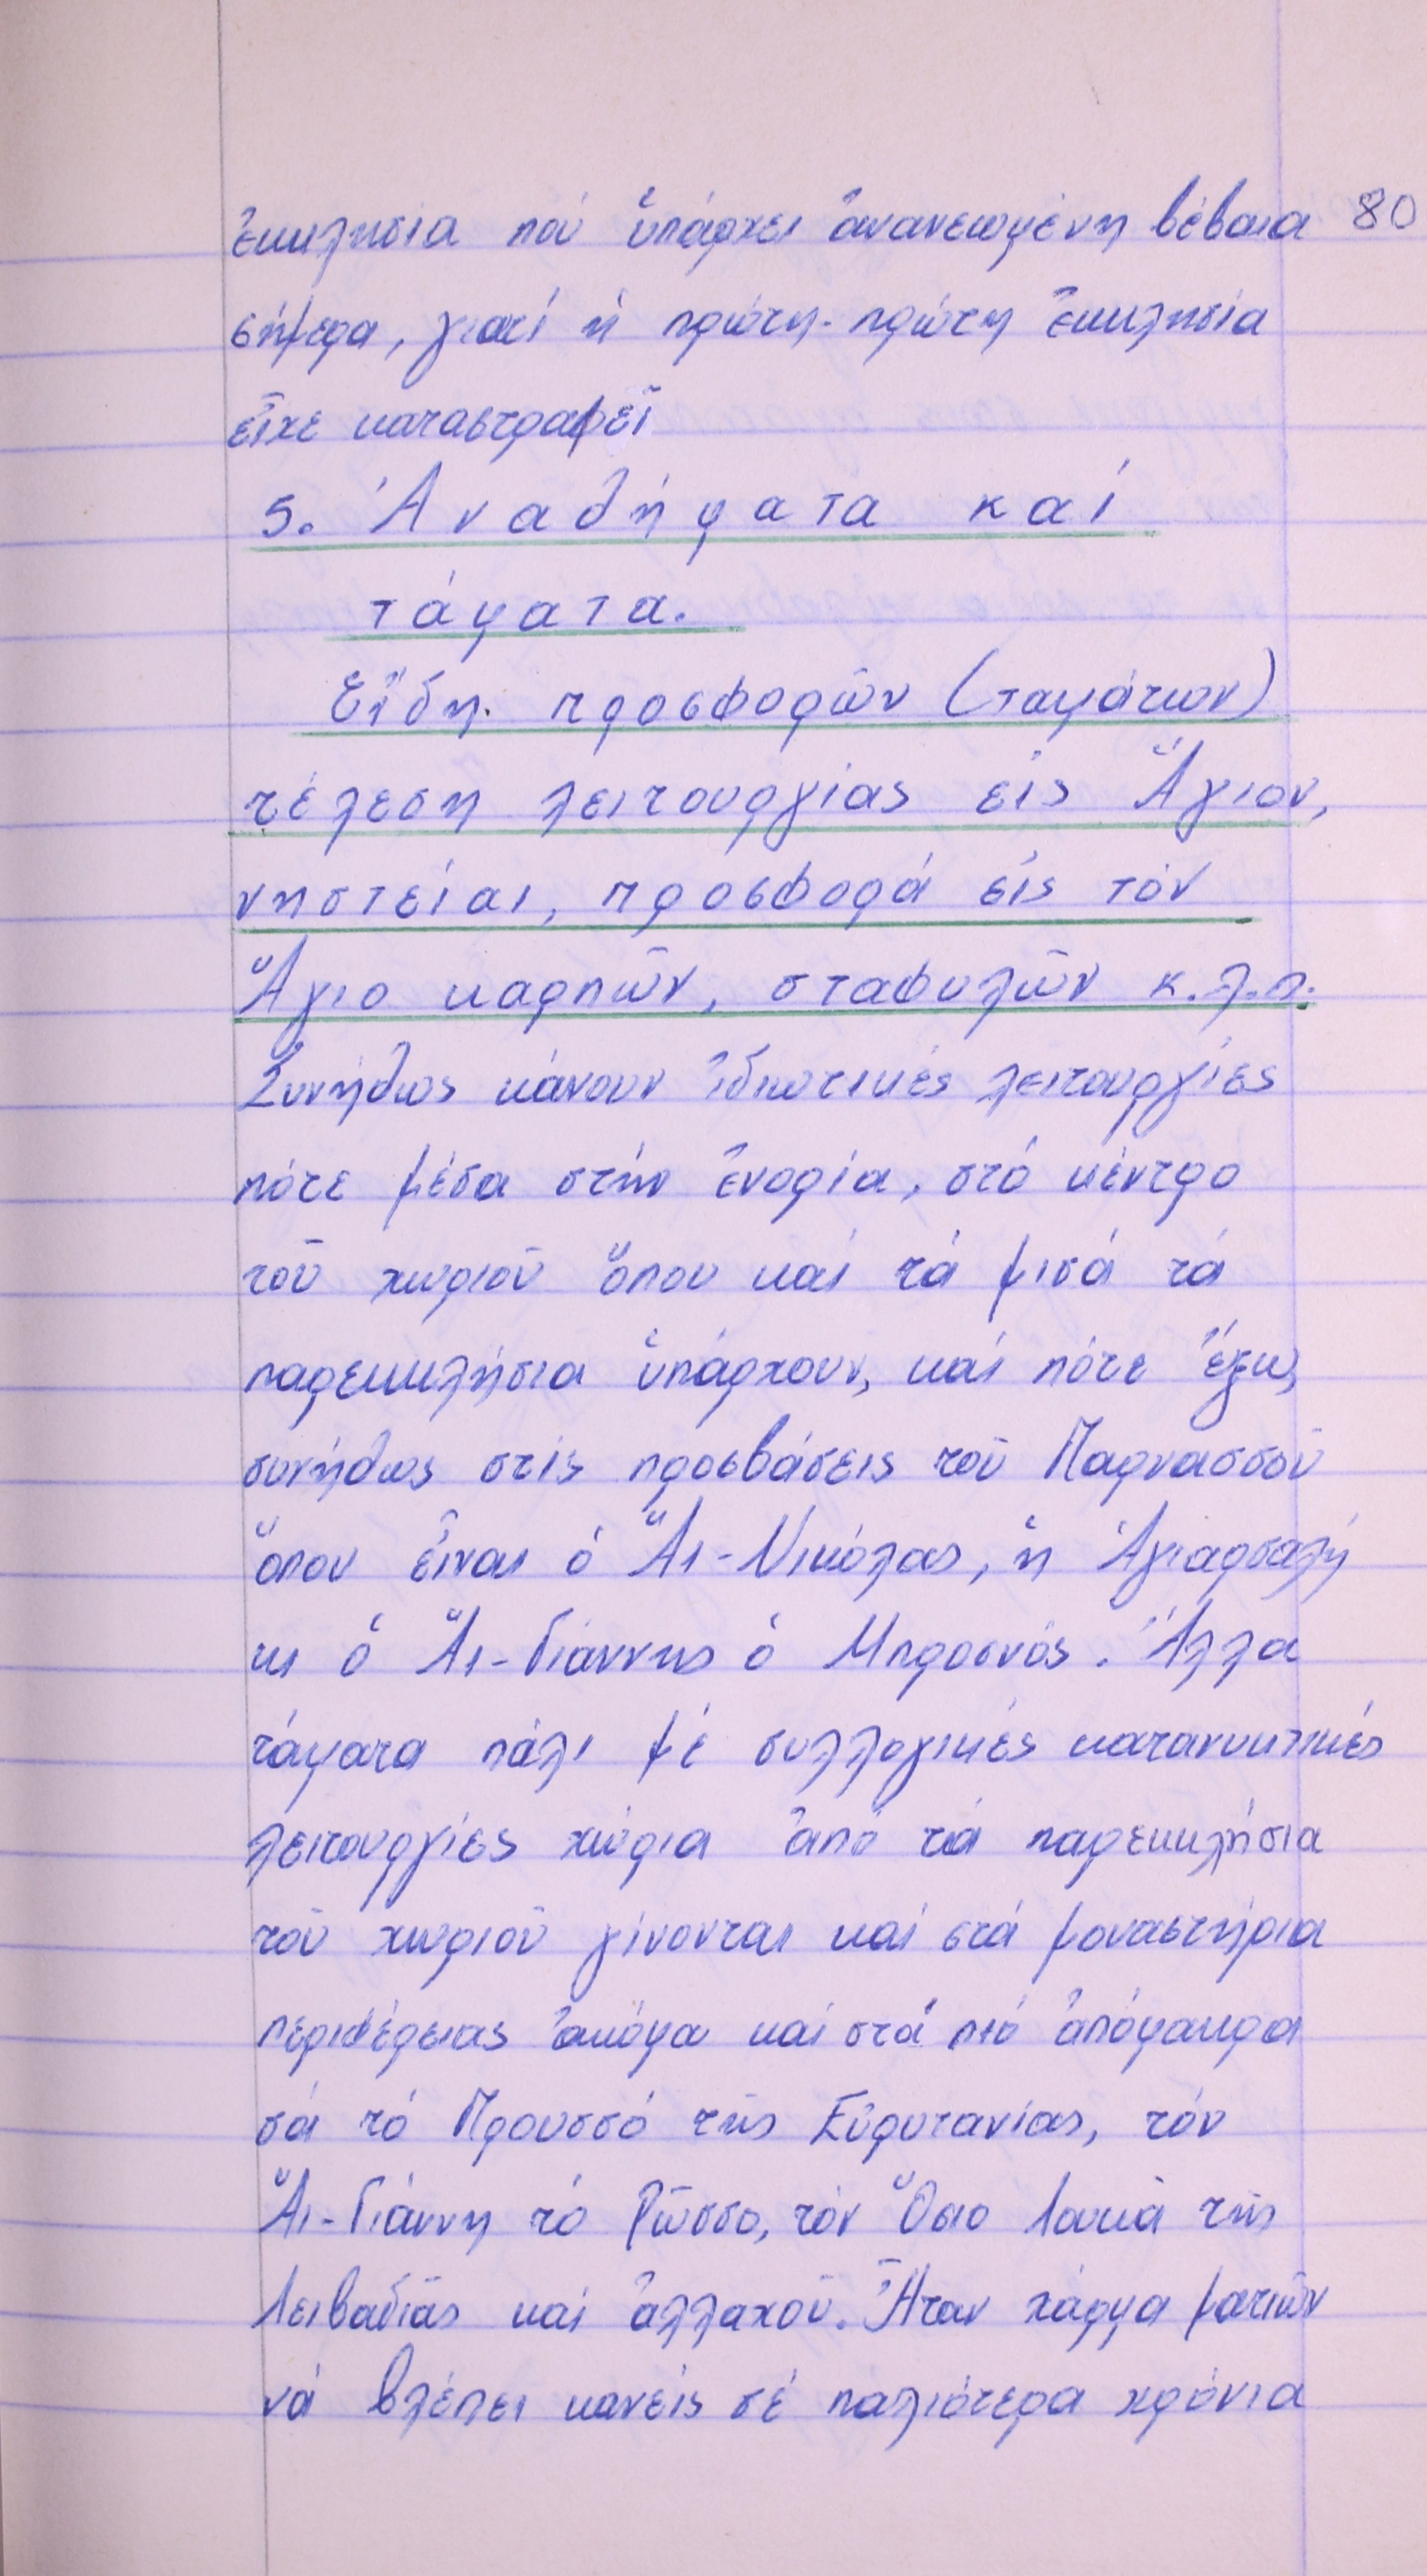 80
ἐκκλησία πού ὑπάρχει ἀνανεωμένη βέβαια
σήμερα, γιατί ἡ πρώτη-πρώτη ἐκκλησία
εἶχε καταστραφεῖ
5. Ἀναθήματα καί
τάματα.
Εἴδη προσφορῶν (ταμάτων)
τέλεση λειτουργίας εἰς Ἅγιον,
νηστεῖαι, προσφορά εἰς τόν
Ἅγιο καρπῶν, σταφυλῶν κ.λ.π.
Συνήθως κάνουν ἰδιωτικές λειτουργίες
πότε μέσα στήν ἐνορία, στό κέντρο
τοῦ χωριοῦ ὅπου καί τά μισά τά
παρεκκλήσια ὑπάρχουν, καί πότε ἔξω,
συνήθως στίς προσβάσεις τοῦ Παρνασσοῦ
ὅπου εἶναι ὁ Ἅι-Νικόλας, ἡ Ἁγιαρσαλή
κι ὁ Ἅι-Γιάννης ὁ Μπροσνός. Ἄλλα
τάματα πάλι μέ συλλογικές κατανυκτικές
λειτουργίες χώρια ἀπό τά παρεκκλήσια
τοῦ χωριοῦ γίνονται καί στά μοναστήρια
περιφέρειας ἀκόμα καί στά πιό ἀπόμακρα
σά τό Προυσσό τῆς Εὐρυτανίας, τόν
Ἅι-Γιάννη τό Ρῶσσο, τόν Ὅσιο Λουκᾶ τῆς
Λειβαδιᾶς καί ἀλλαχοῦ. Ἦταν χάρμα ματιῶν
νά βλέπει κανείς σέ παλιότερα χρόνια